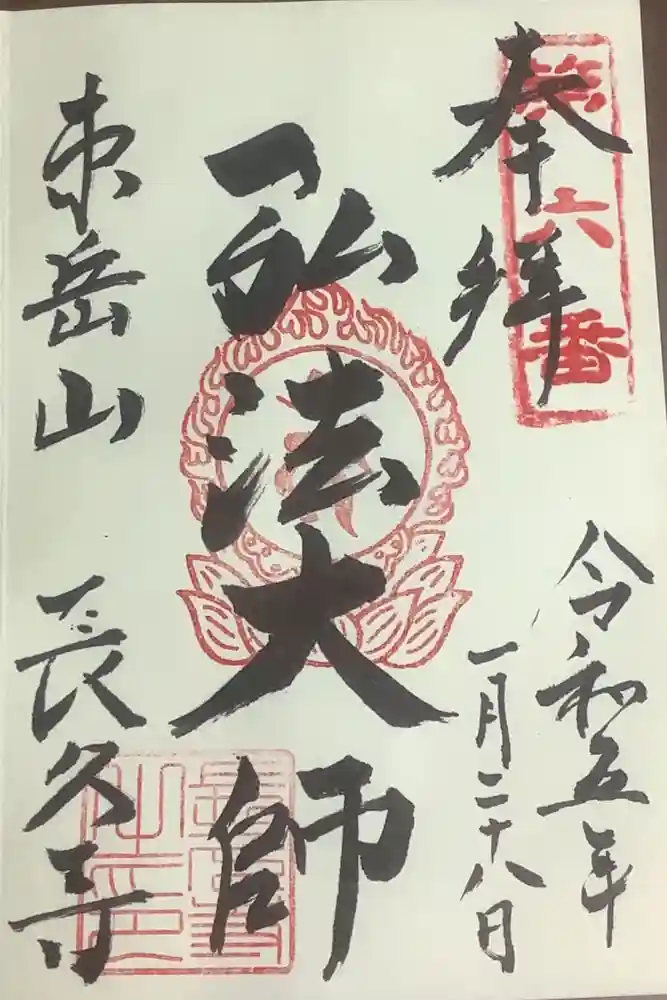 奉拝
第六番
令和五年
一月二十八日
弘法大師
東岳山
長久寺